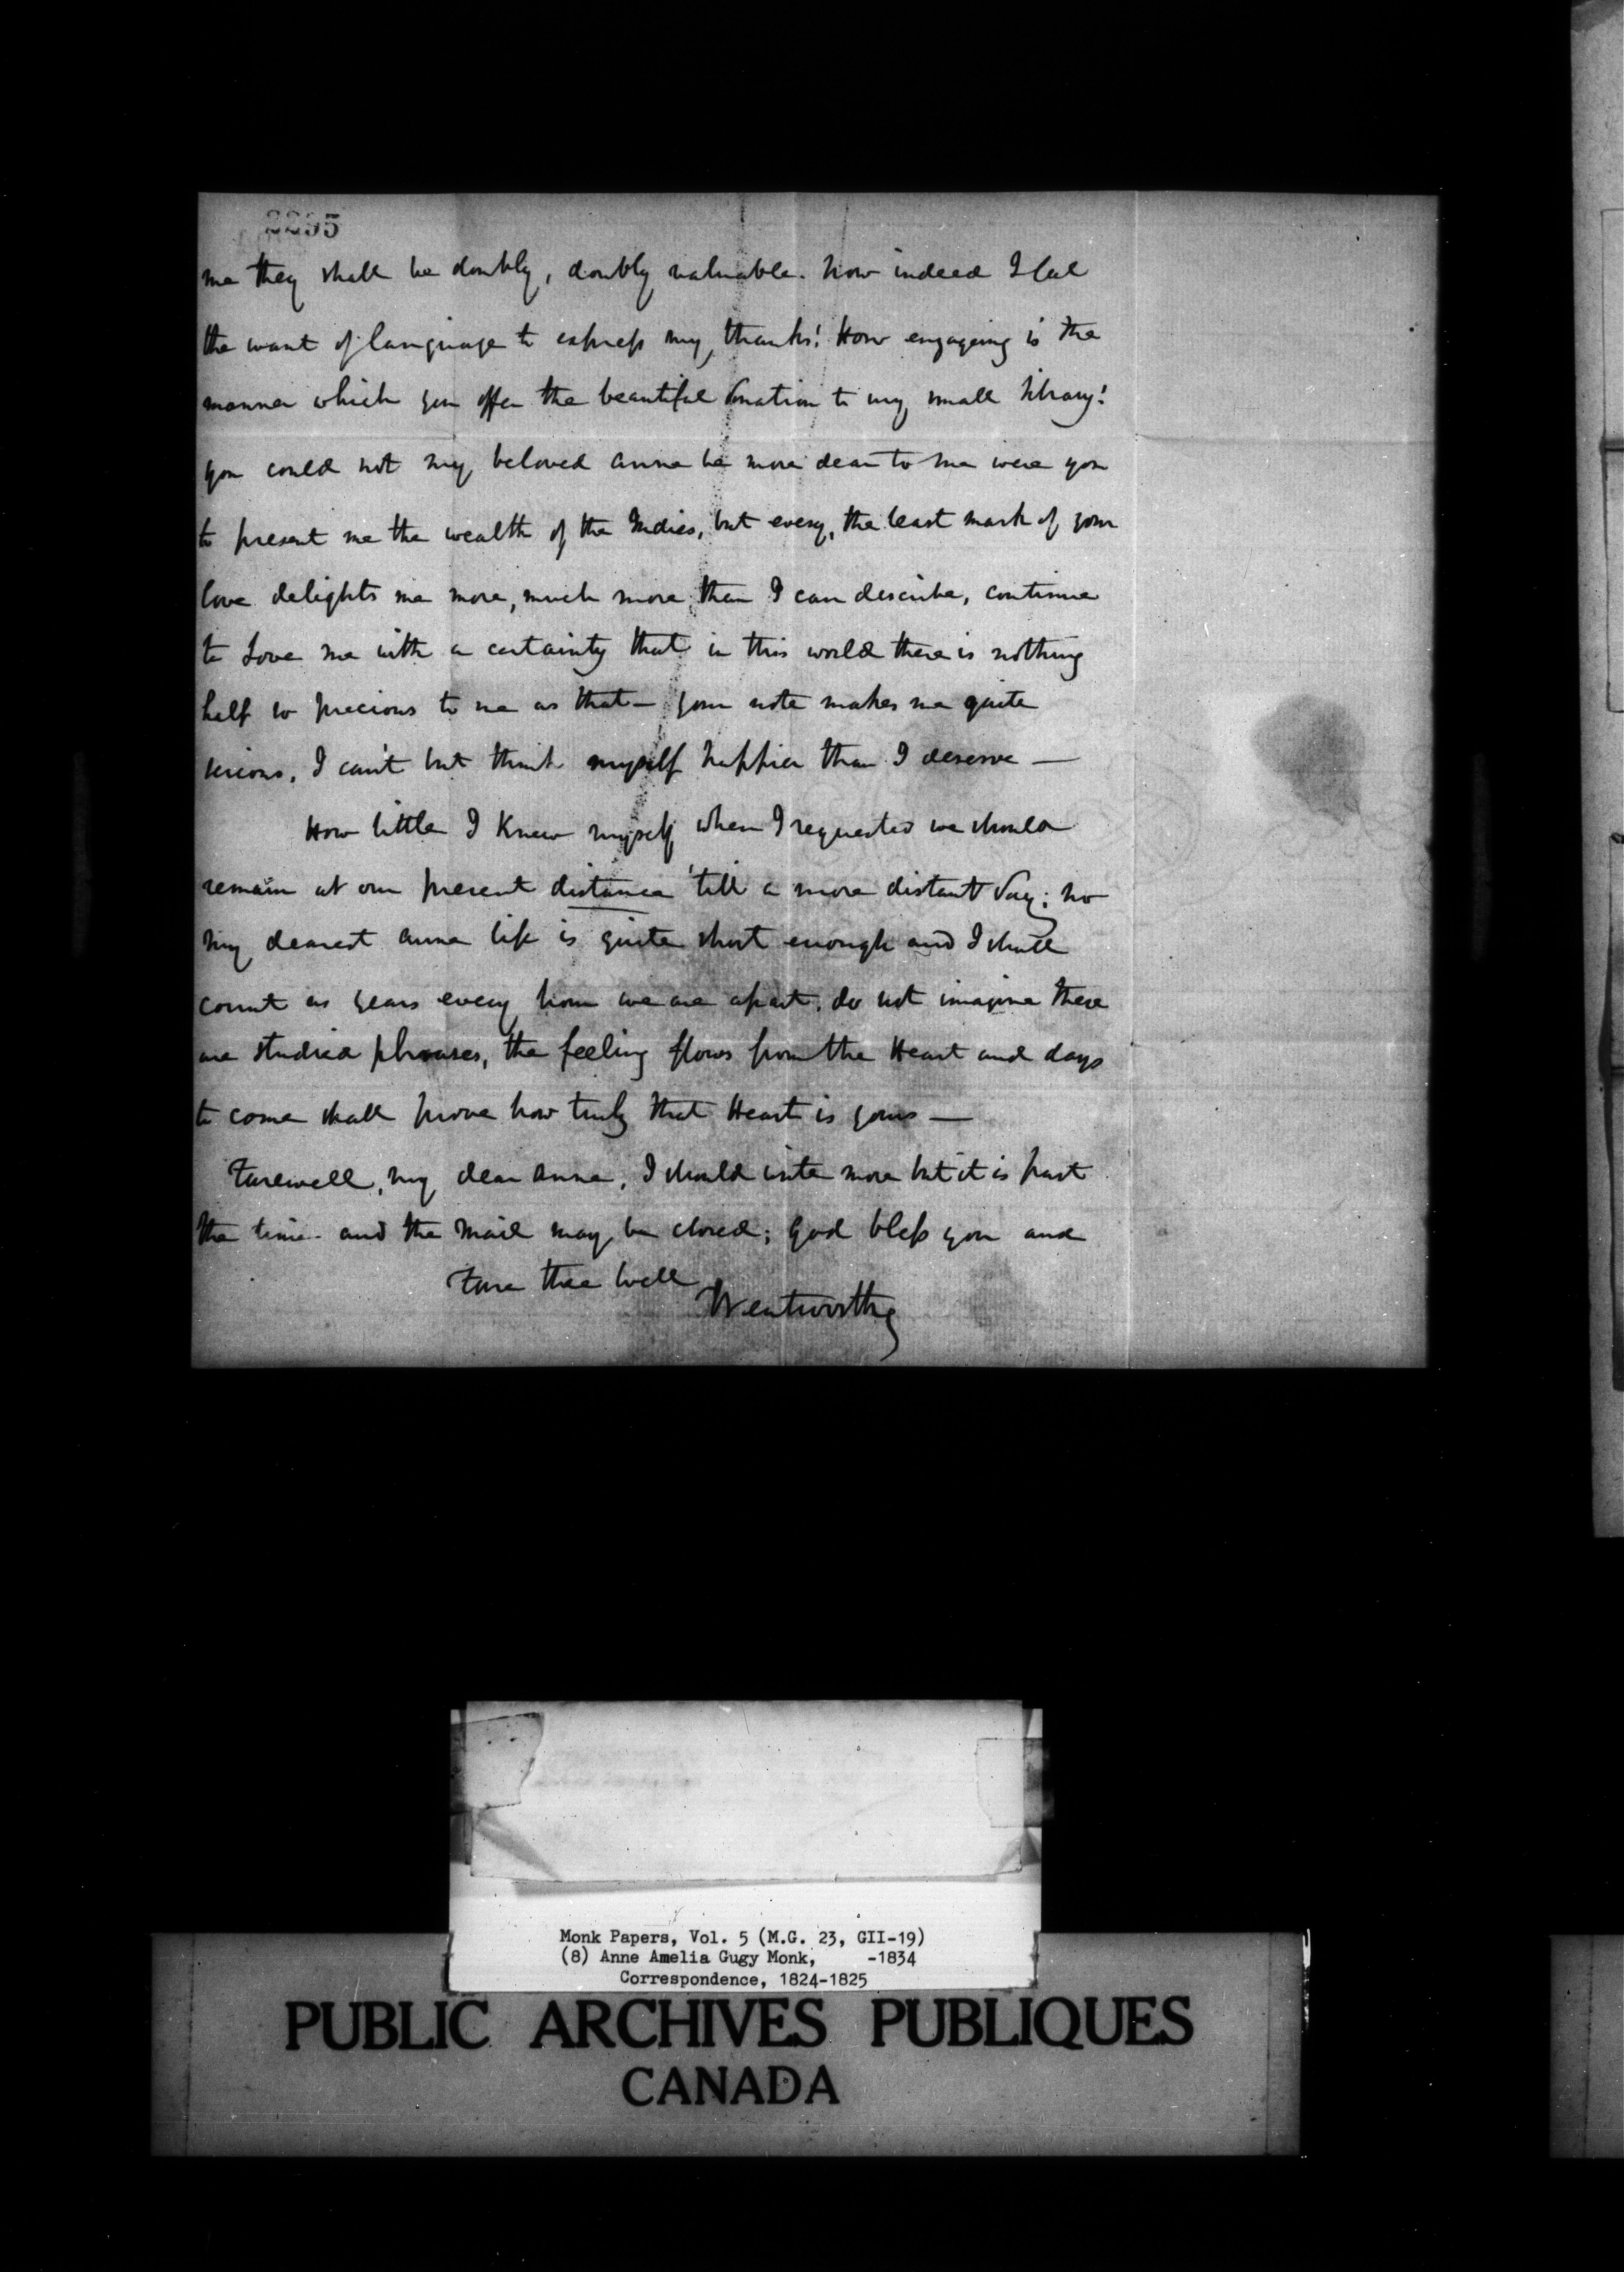 2295
me they shall be doubly, doubly valuable. now indeed I feel
the want of language to express my thanks! How engageing is the
manner which you offer the beautiful donation to my small library!
you could not my beloved Anna be more dear to me were you
to present me the wealth of the Indies, but every, the least mark of your
love delights me more, much more than I can describe, continue
to Love me with a certainty that in this world there is nothing
half so precious to me as that — your note makes me quite
serious, I can't but think myself happier than I deserve —
How little I knew myself when I requested we should
remain at our present distance 'till a more distant day; no
my dearest Anna life is quite short enough and I shall
count as years every hour we are apart. do not imagine these
are studied phrases, the feeling flows from the Heart and days
to come shall prove how truly that Heart is yours —
Farewell, my dear Anna, I should write more but it is past
the time and the mail may be closed; God bless you and
Fare thee well
Wentworth
Monk Papers, Vol. 5 (M.G. 23, GII-19)
(8) Anne Amelia Gugy Monk, -1834
Correspondence, 1824-1825
PUBLIC ARCHIVES PUBLIQUES
CANADA